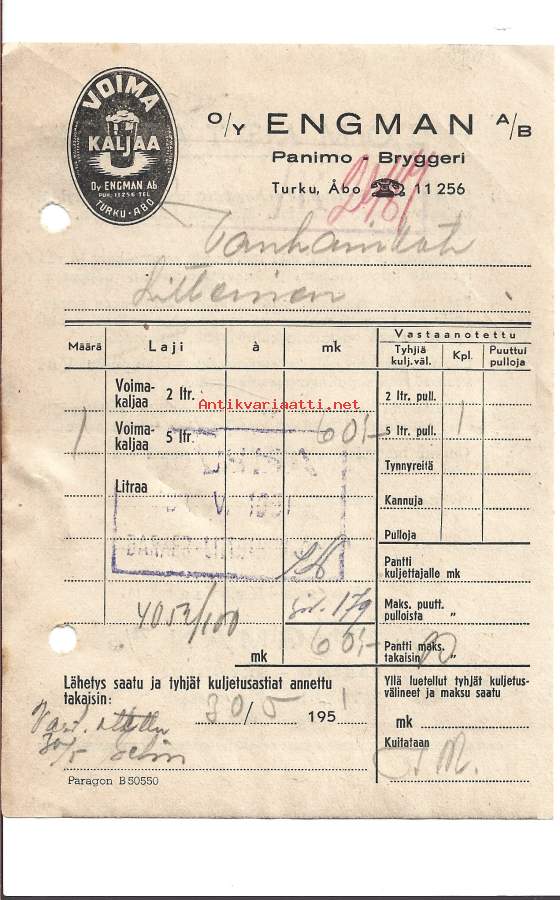 VOIMA
KALJAA
Oy ENGMAN Ab
PUH. 11256 TEL
TURKU-ÅBO
O/Y ENGMAN A/B
Panimo - Bryggeri
Turku, Åbo 11 256
Littoinen
Määrä Laji à mk
Vastaanotettu
Tyhjiä kulj.väl. Kpl. Puuttui pulloja
Voima-kaljaa 2 ltr. 2 ltr. pull.
Antikvariaatti.net
1 Voima-kaljaa 5 ltr. 60:- 5 ltr. pull. 1
Tynnyreitä
Litraa
Kannuja
Pulloja
Pantti kuljettajalle mk
Maks. puutt. pulloista "
4053/100
179
mk 60:- Pantti maks. takaisin "
Lähetys saatu ja tyhjät kuljetusastiat annettu
takaisin: 30/5 1951
Yllä luetellut tyhjät kuljetus-
välineet ja maksu saatu
mk
Kuitataan
30/5
Paragon B 50550